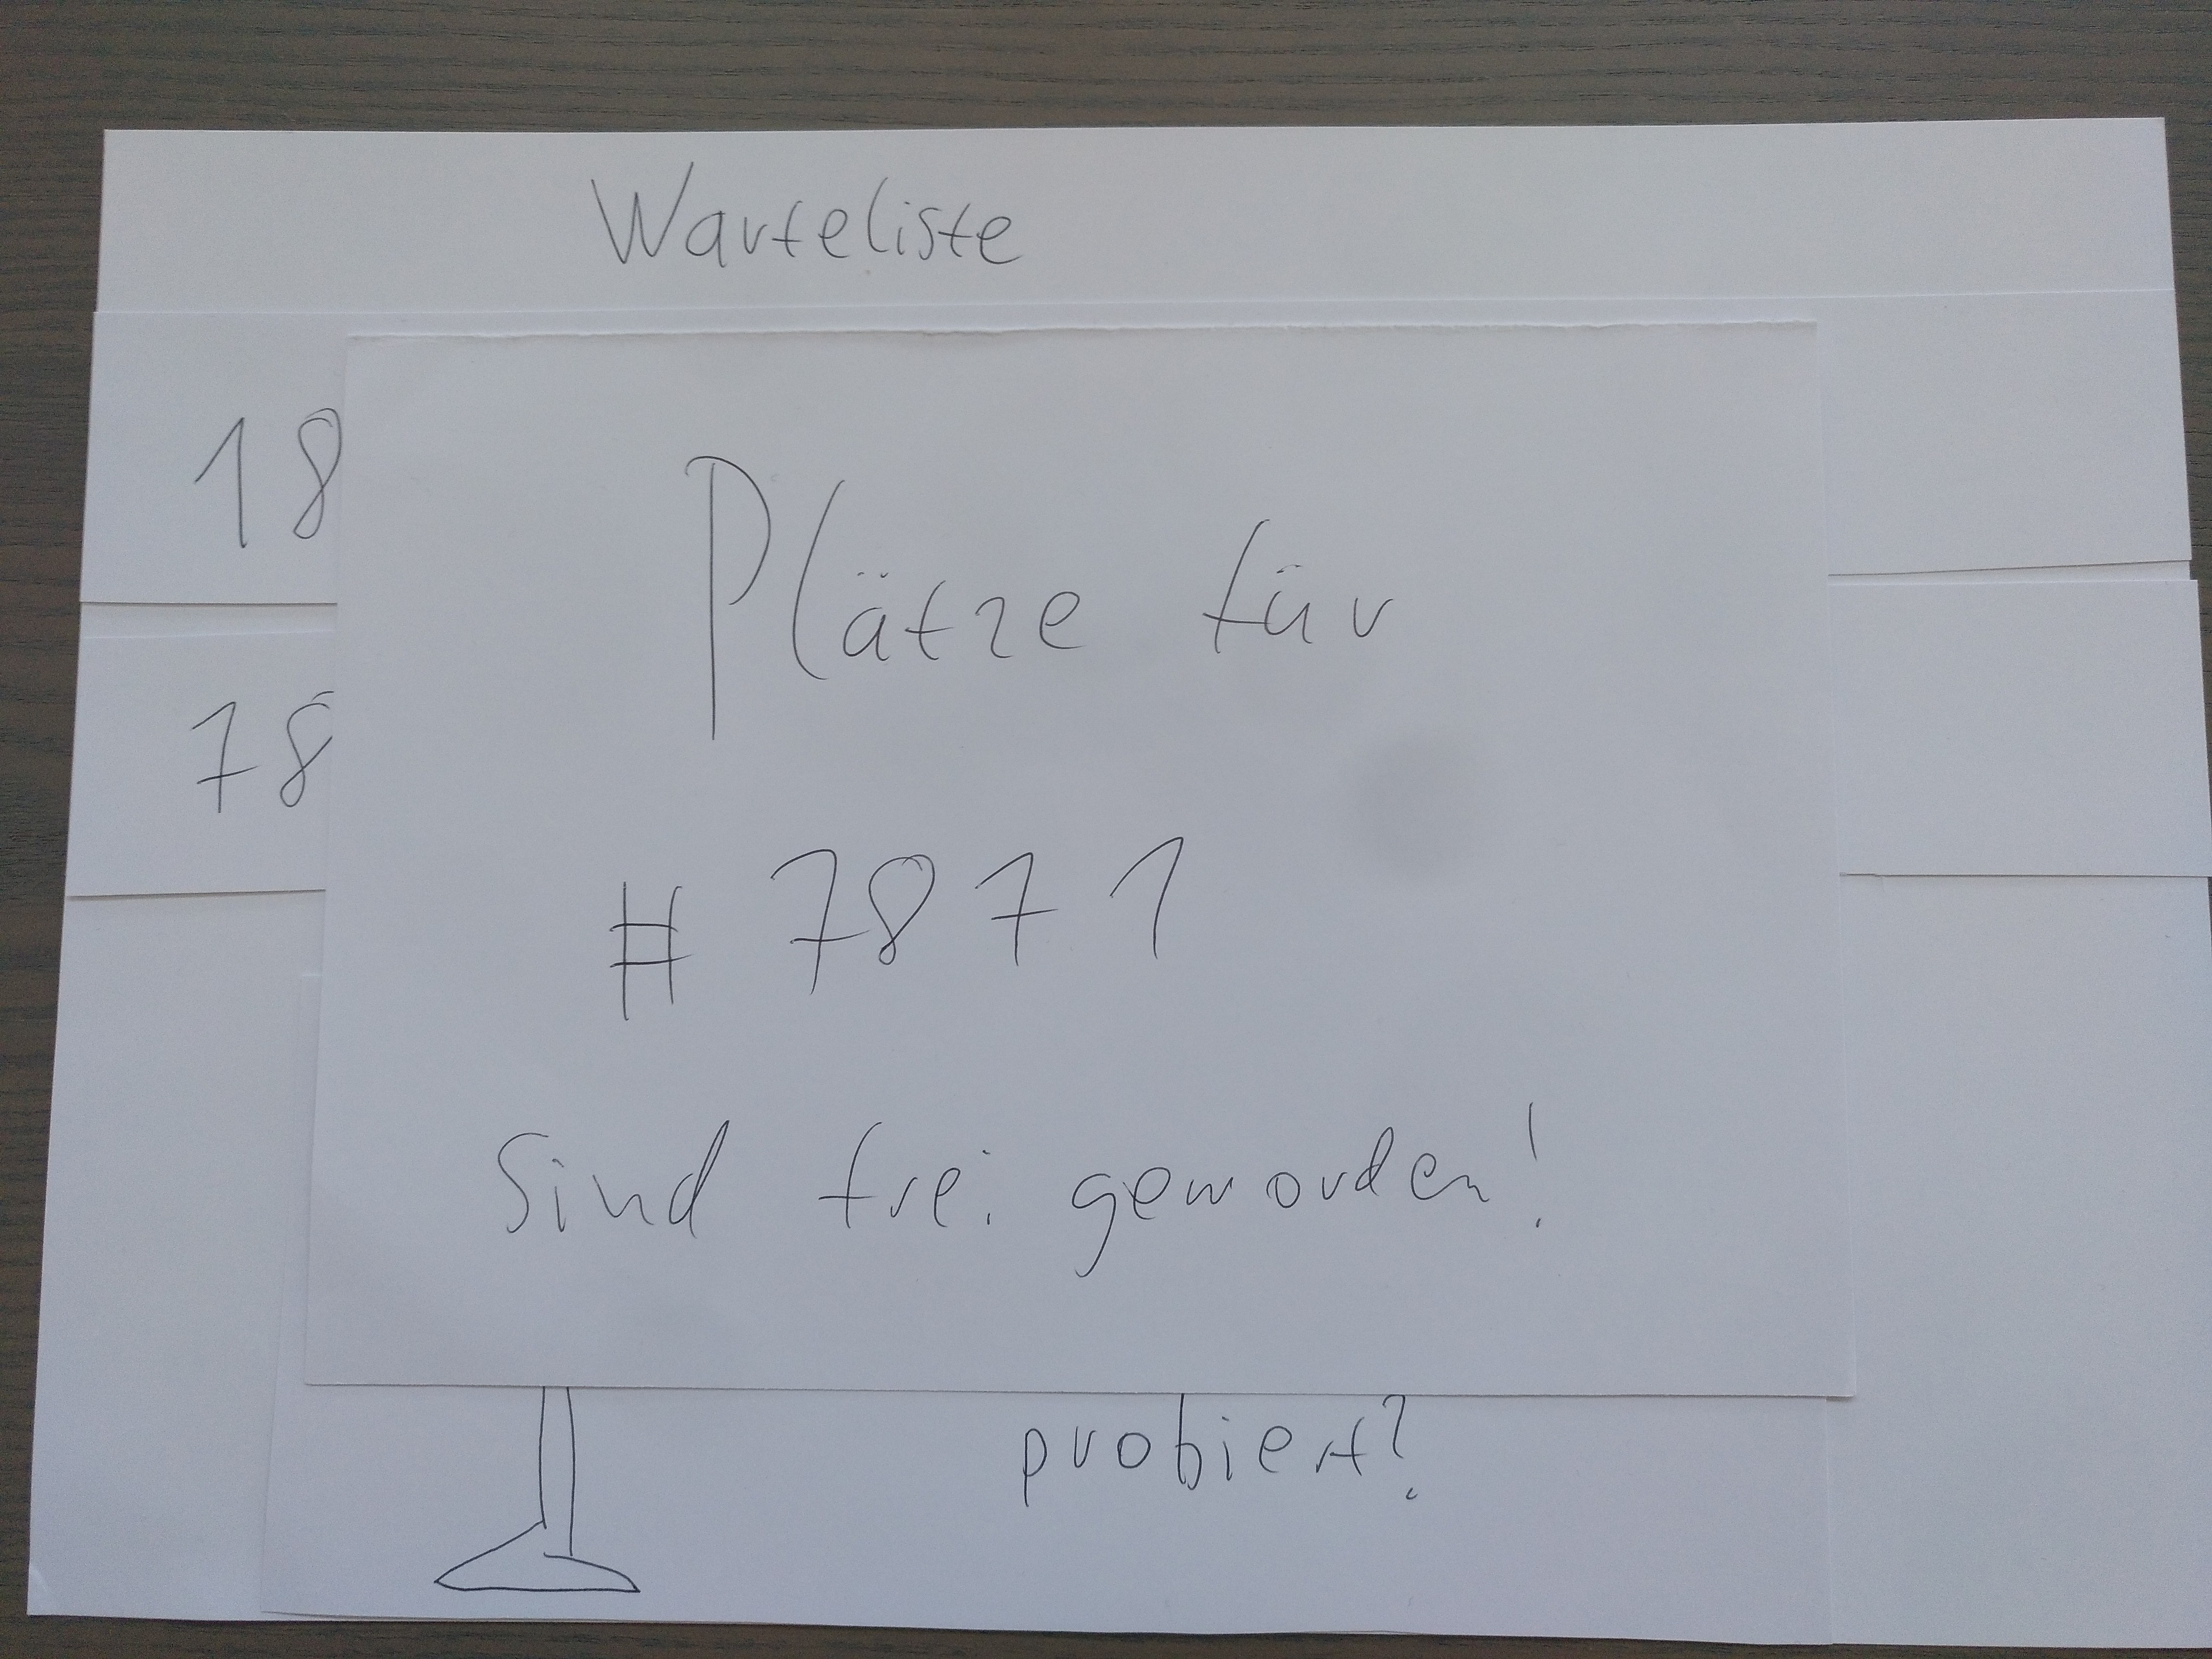 Warteliste
18
Plätze für
78
# 7871
sind frei geworden!
probiert?